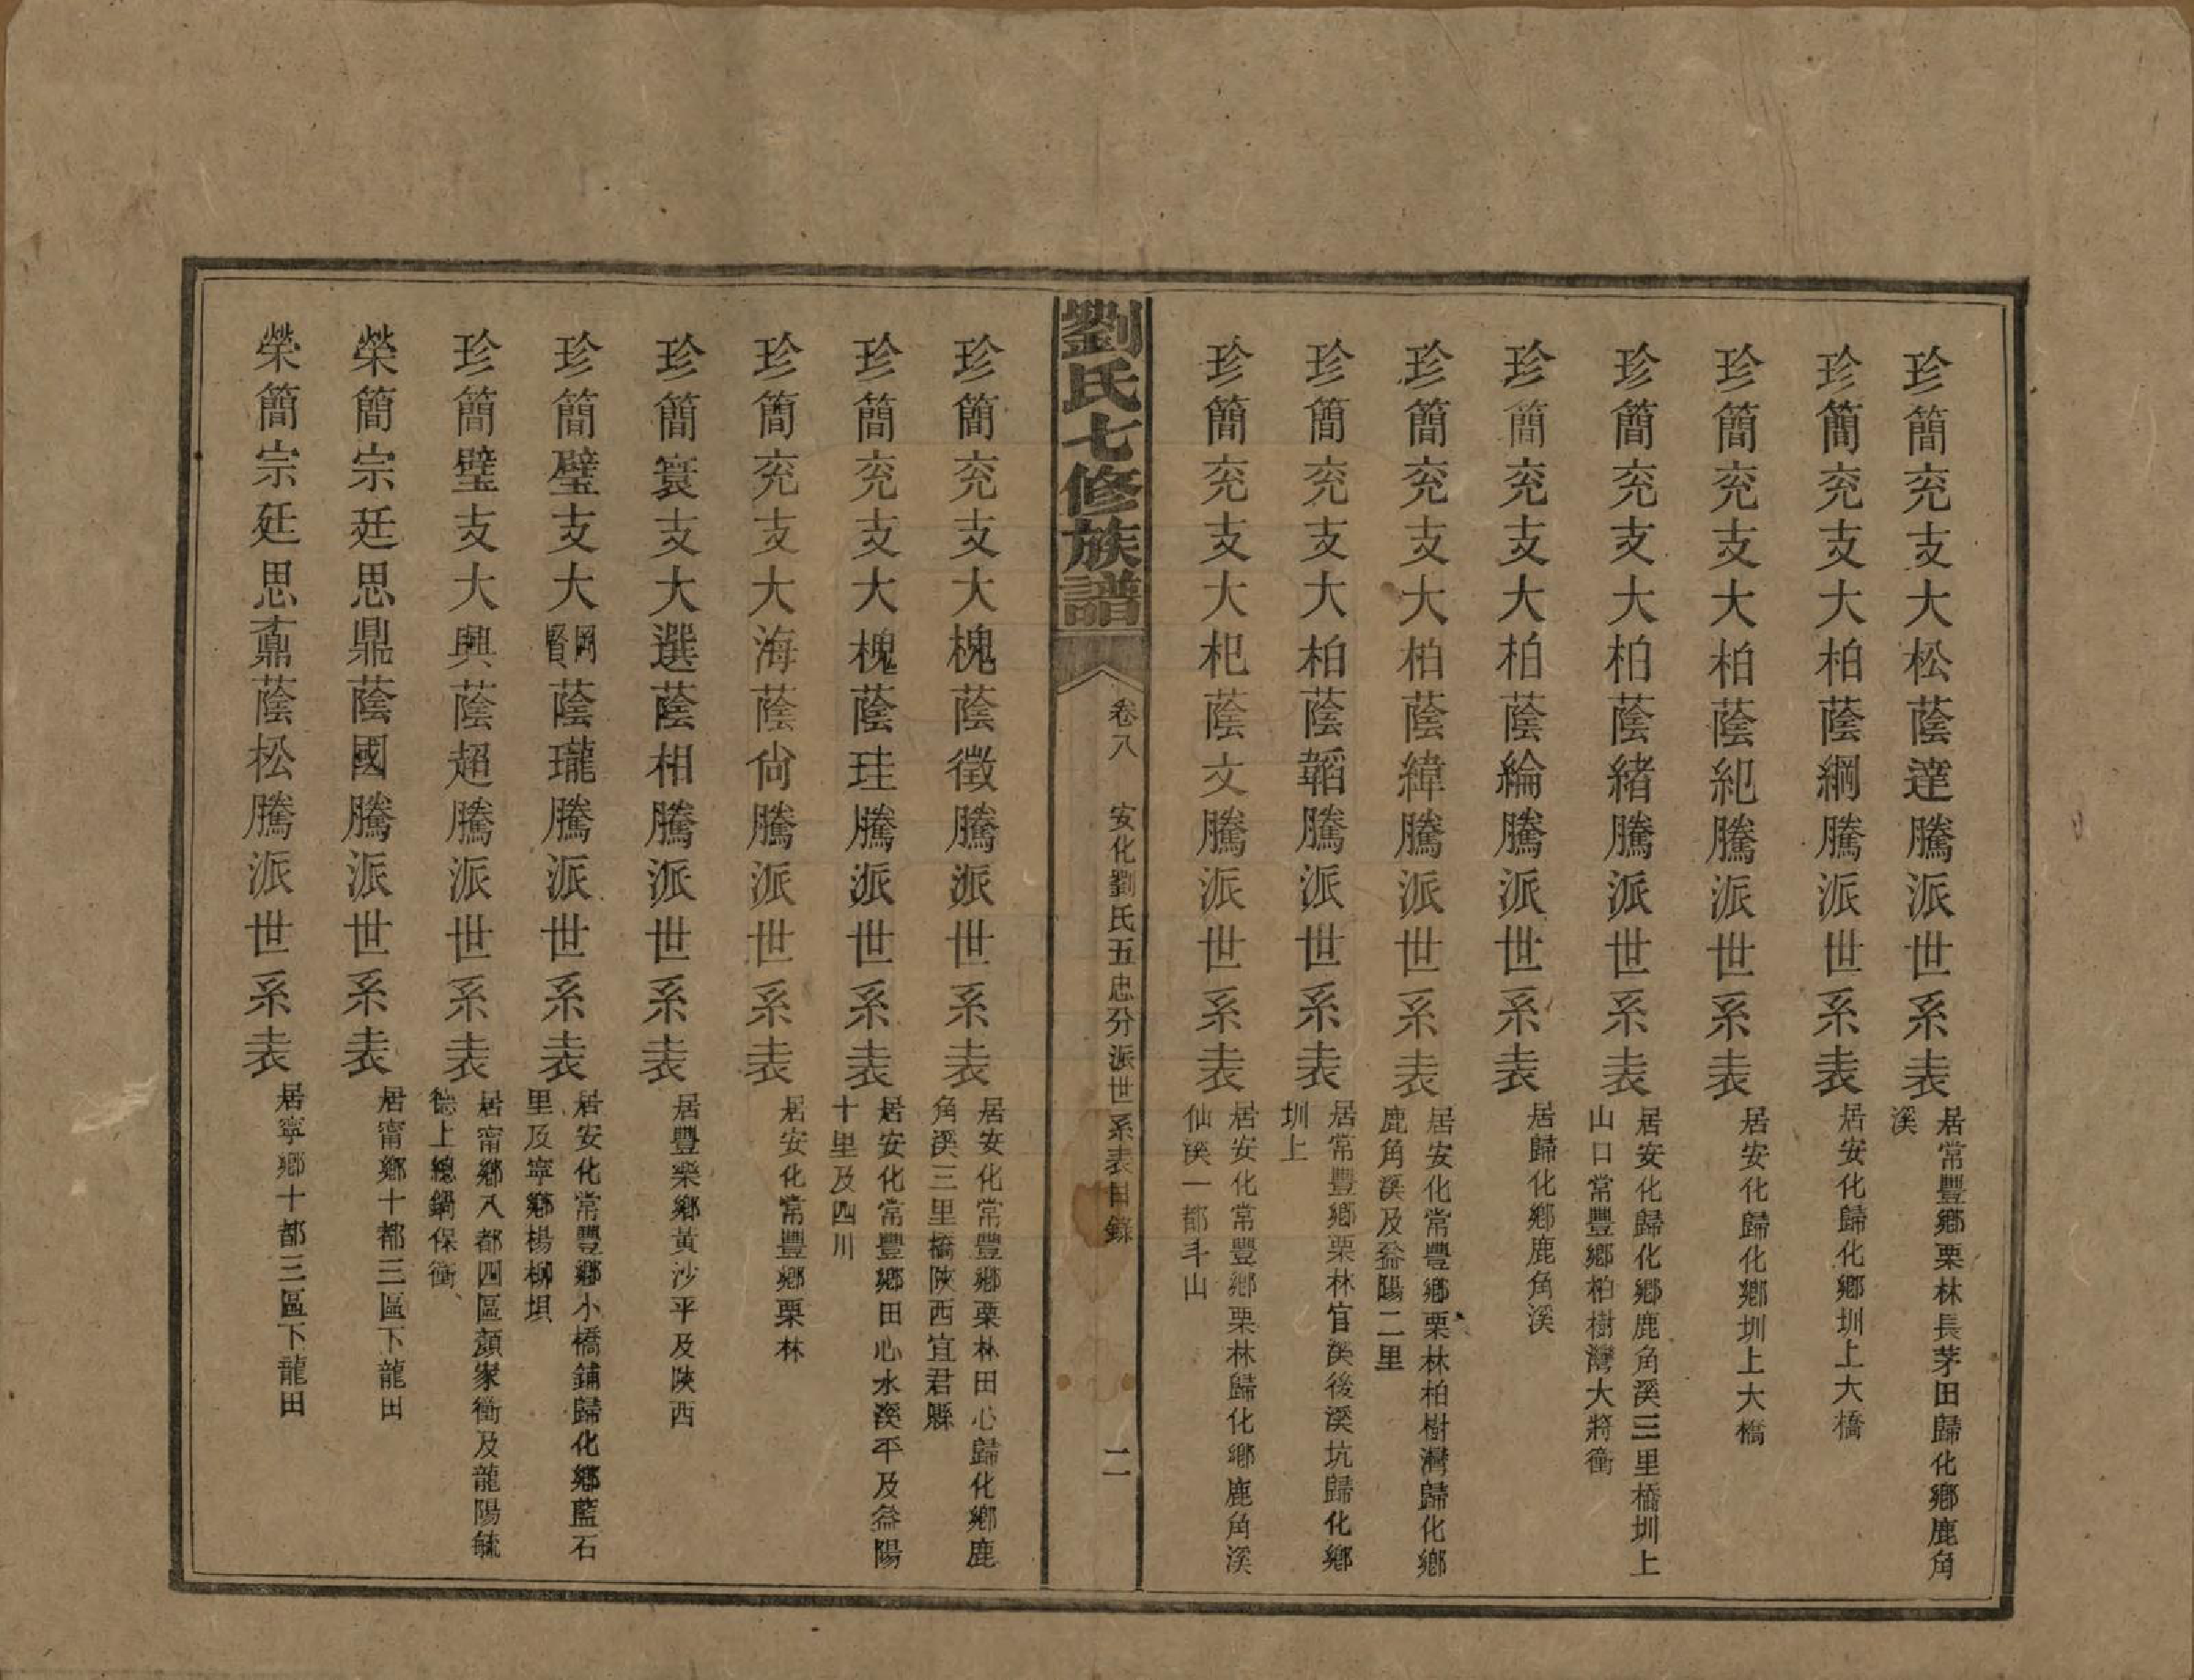 珍簡充支大松蔭達騰派世系表
居常豐鄉栗林長茅田歸化鄉鹿角
溪
珍簡充支大柏蔭綱騰派世系表
居安化歸化鄉圳上大橋
珍簡充支大柏蔭紀騰派世系表
居安化歸化鄉圳上大橋
珍簡充支大柏蔭緒騰派世系表
居安化歸化鄉鹿角溪三里橋圳上
山口常豐鄉柏樹灣大將衝
珍簡充支大柏蔭綸騰派世系表
居歸化鄉鹿角溪
珍簡充支大柏蔭緯騰派世系表
居安化常豐鄉栗林柏樹灣歸化鄉
鹿角溪及益陽二里
珍簡充支大柏蔭韜騰派世系表
居常豐鄉栗林官溪後溪坑歸化鄉
圳上
珍簡充支大杞蔭文騰派世系表
居安化常豐鄉栗林歸化鄉鹿角溪
仙溪一都斗山
劉氏七修族譜
卷八
安化劉氏五忠分派世系表目錄
二
珍簡充支大槐蔭徵騰派世系表
居安化常豐鄉栗林田心歸化鄉鹿
角溪三里橋陝西宜君縣
珍簡充支大槐蔭珪騰派世系表
居安化常豐鄉田心水溪平及益陽
十里及四川
珍簡充支大海蔭尙騰派世系表
居安化常豐鄉栗林
珍簡寰支大選蔭相騰派世系表
居豐樂鄉黃沙平及陝西
珍簡璧支大岡賢蔭瓏騰派世系表
居安化常豐鄉小橋鋪歸化鄉藍石
里及寧鄉楊柳垻
珍簡璧支大興蔭超騰派世系表
居甯鄉八都四區顏家衝及龍陽毓
德上總鍋保衝、
榮簡宗廷思鼎蔭國騰派世系表
居甯鄉十都三區下龍田
榮簡宗廷思鼒蔭松騰派世系表
居寧鄉十都三區下龍田